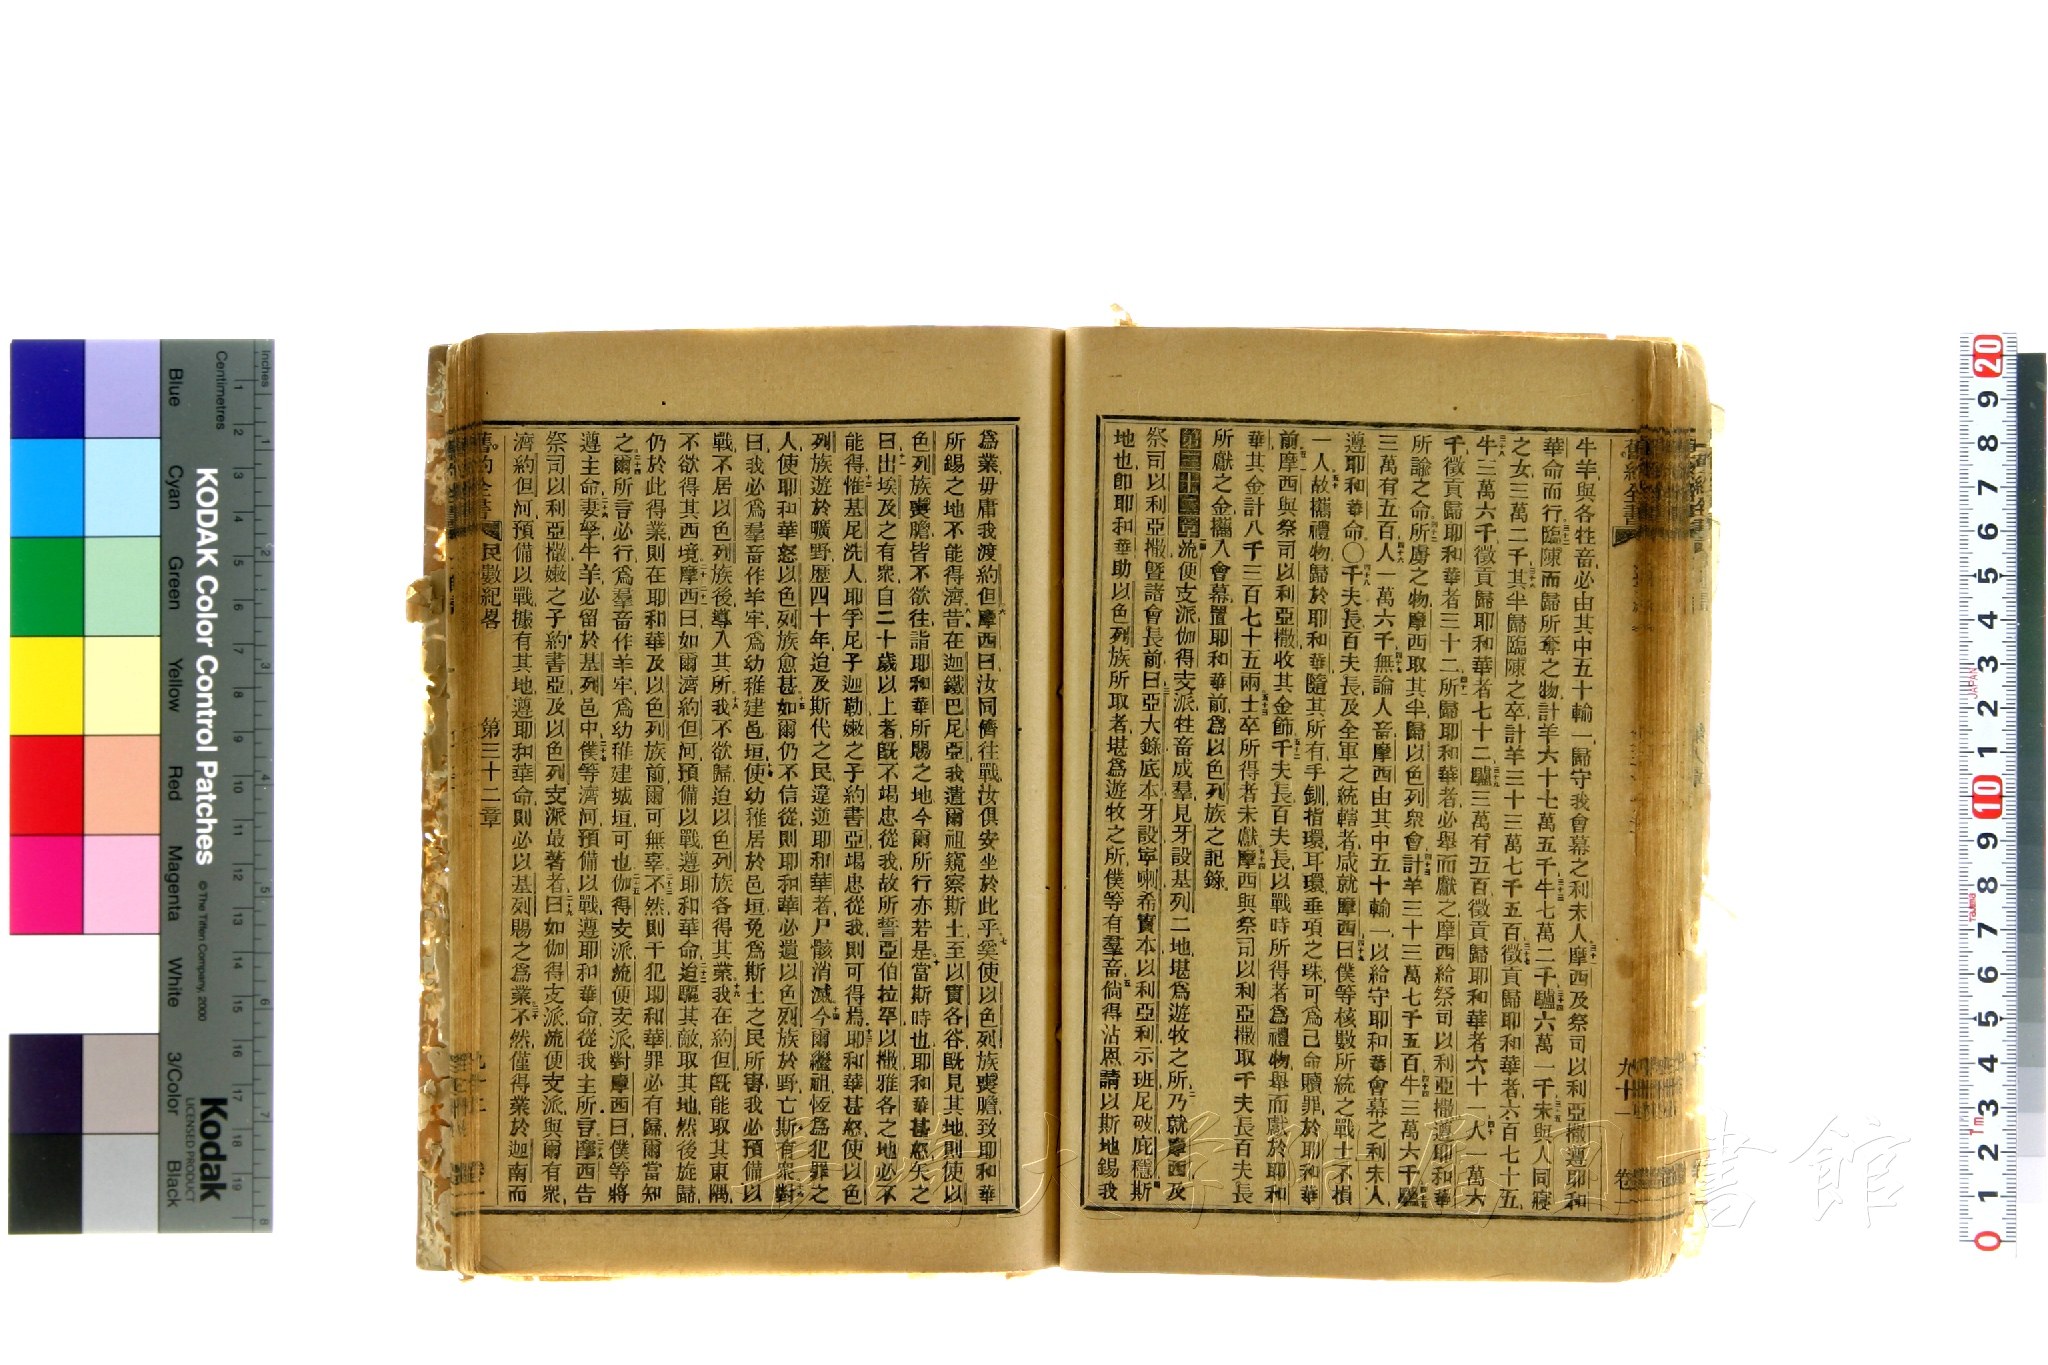 舊約全書
九十一
牛羊與各牲畜必由其中五十輸一歸守我會幕之利未人摩西及祭司以利亞撒遵耶和
華命而行臨陳而歸所奪之物計羊六十七萬五千牛七萬二千驢六萬一千未與人同寢
之女三萬二千其半歸臨陳之卒計羊三十三萬七千五百徵貢歸耶和華者六百七十五
牛三萬六千徵貢歸耶和華者七十二驢三萬有五百徵貢歸耶和華者六十一人一萬六
千徵貢歸耶和華者三十二所歸耶和華者必舉而獻之摩西給祭司以利亞撒遵耶和華
所諭之命所虜之物摩西取其半歸以色列衆會計羊三十三萬七千五百牛三萬六千驢
三萬有五百人一萬六千無論人畜摩西由其中五十輸一以給守耶和華會幕之利未人
遵耶和華命〇千夫長百夫長及全軍之統轄者咸就摩西曰僕等核數所統之戰士不損
一人故攜禮物歸於耶和華隨其所有手釧指環耳環垂項之珠可爲己命贖罪於耶和華
前摩西與祭司以利亞撒收其金飾千夫長百夫長以戰時所得者爲禮物舉而獻於耶和
華其金計八千三百七十五兩士卒所得者未獻摩西與祭司以利亞撒取千夫長百夫長
所獻之金攜入會幕置耶和華前爲以色列族之記錄
第三十二章流便支派伽得支派牲畜成羣見牙設基列二地堪爲遊牧之所乃就摩西及
祭司以利亞撒曁諸會長前曰亞大錄底本牙設寧喇希實本以利亞利示班尼破庇穩斯
地也卽耶和華助以色列族所取者堪爲遊牧之所僕等有羣畜倘得沾恩請以斯地錫我
爲業毋庸我渡約但摩西曰汝同儕往戰汝俱安坐於此乎奚使以色列族喪膽致耶和華
所錫之地不能得濟昔在迦鐵巴尼亞我遣爾祖窺察斯土至以實各谷旣見其地則使以
色列族喪膽皆不欲往詣耶和華所賜之地今爾所行亦若是當斯時也耶和華甚怒矢之
曰出埃及之有衆自二十歲以上者旣不竭忠從我故所誓亞伯拉罕以撒雅各之地必不
能得惟基尼洗人耶孚尼子迦勒嫩之子約書亞竭忠從我則可得焉耶和華甚怒使以色
列族遊於曠野歷四十年迨及斯代之民違逆耶和華者尸骸消滅今爾繼祖恆爲犯罪之
人使耶和華怒以色列族愈甚如爾仍不信從則耶和華必遺以色列族於野亡斯有衆對
曰我必爲羣畜作羊牢爲幼稚建邑垣使幼稚居於邑垣免爲斯土之民所害我必預備以
戰不居以色列族後導入其所我不欲歸迨以色列族各得其業我在約但旣能取其東隅
不欲得其西境摩西曰如爾濟約但河預備以戰遵耶和華命迨驅其敵取其地然後旋歸
仍於此得業則在耶和華及以色列族前爾可無辜不然則干犯耶和華罪必有歸爾當知
之爾所言必行爲羣畜作羊牢爲幼稚建城垣可也伽得支派流便支派對摩西曰僕等將
遵主命妻孥牛羊必留於基列邑中僕等濟河預備以戰遵耶和華命從我主所言摩西告
祭司以利亞撒嫩之子約書亞及以色列支派最著者曰如伽得支派流便支派與爾有衆
濟約但河預備以戰據有其地遵耶和華命則必以基列賜之爲業不然僅得業於迦南而
舊約全書 民數紀畧 第三十二章
KODAK Color Control Patches
© The Tiffen Company, 2000
Kodak
LICENSED PRODUCT
Inches
Centimetres
Blue Cyan Green Yellow Red Magenta White 3/Color Black
JAPAN
大学附属図書館